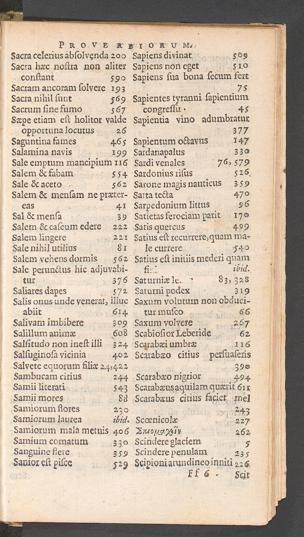 PROVERBIORVM.
Sacra celerius absolvenda 200
Sacra hæc nostra non aliter
constant 590
Sacram ancoram solvere 193
Sacra nihil sunt 569
Sacrum sine fumo 567
Sæpe etiam est holitor valde
opportuna locutus 26
Saguntina fames 465
Salamina navis 199
Sale emptum mancipium 116
Salem & fabam 554
Sale & aceto 562
Salem & mensam ne præter-
eas 41
Sal & mensa 39
Salem & caseum edere 222
Salem lingere 221
Sale nihil utilius 81
Salem vehens dormis 562
Sale perunctus hic adjuvabi-
tur 376
Saliares dapes 572
Salis onus unde venerat, illuc
abiit 614
Salivam imbibere 309
Salillum animæ 608
Salsitudo non inest illi 324
Salsuginosa vicinia 402
Salvete equorum filiæ 24,422
Sambucam citius 244
Samii literati 543
Samii mores 88
Samiorum flores 230
Samiorum laurea ibid.
Samiorum mala metuis 406
Samium comatum 330
Sanguine flere 359
Sanior est pisce 529
Sapiens divinat 509
Sapiens non eget 510
Sapiens sua bona secum fert
75
Sapientes tyranni sapientium
congressu 45
Sapientia vino adumbratur
377
Sapientum octavus 147
Sardanapalus 330
Sardi venales 76, 579
Sardonius risus 526
Sarone magis nauticus 359
Sarta tecta 470
Sarpedonium littus 96
Satietas ferociam patit 170
Satis quercus 499
Satius est recurrere, quam ma-
le currere 540
Satius est initiis mederi quam
ibid.
Saturniæ 83, 328
Saturni podex 319
Saxum volutum non obduci-
tur musco 66
Saxum volvere 267
Scabiosior Leberide 62
Scarabæi umbræ 116
Scarabæo citius persuaseris
390
Scarabæo nigrior 494
Scarabæus aquilam quærit 611
Scarabæus citius faciet mel
243
Scœnicolæ 227
262
Scindere glaciem 5
Scindere penulam 235
Scipioni arundineo inniti 226
Ff 6
Scit